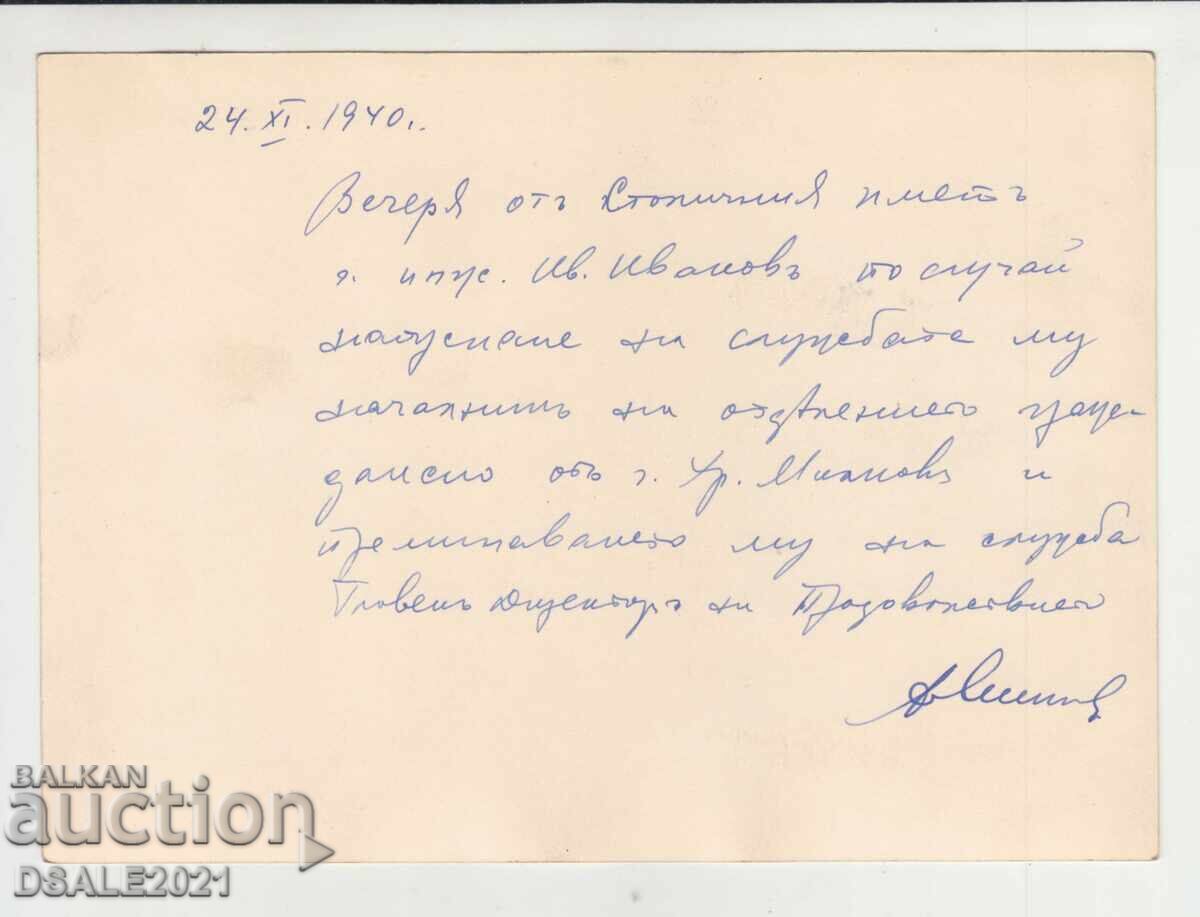 24. XI. 1940.
Вечеря отъ Столичния кметъ
г. инж. Ив. Ивановъ по случай
напускане на службата му
началникъ на отдѣлението граж-
данско отъ г. Хр. и
преминаването му на служба
Главенъ Директоръ на Продоволствието
BALKAN
auction
DSALE2021